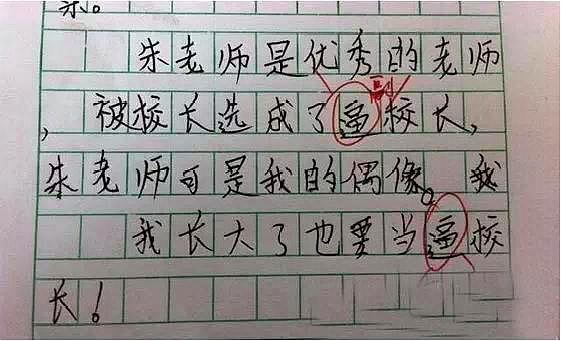 朱老师是优秀的老师
副
，被校长选成了逼校长，
朱老师可是我的偶像。我
我长大了也要当逼校
长！